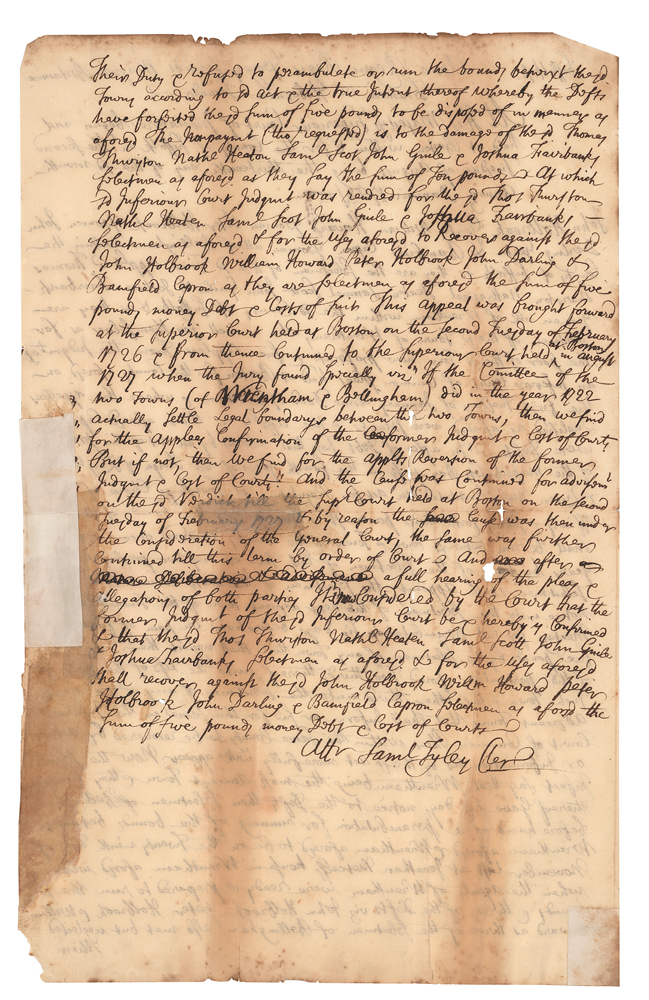 Their Duty & refused to perambulate or run the bounds betwixt the sd
Towns according to sd act & the true Intent thereof whereby the Defts
have forfeited the sd Sum of five pounds to be disposed of in manner as
aforesd The Nonpaymt (tho requested) is to the damage of the sd Thomas
Thurston Nathl Heaton Saml Scot John Guile & Joshua Fairbanks
Selectmen as aforesd as they say the sum of Ten pounds At which
sd Inferiour Court Judgmt was rendred for the sd Thos Thurston
Nathll Heaten Saml Scot John Guile & Joshua Fairbanks
Selectmen as aforesd & for the Uses aforesd to Recover against the sd
John Holbrook William Howard Peter Holbrook John Darling &
Bamfield Capron as they are Selectmen as aforesd the sum of five
pounds money Debt & Costs of suit This Appeal was brought forward
at the Superior Court held at Boston on the Second Tuesday of February
1726 & from thence Continued to the Superiour Court held at Boston in August
1727 when the Jury found Specially vizt If the Comittee of the
two Towns (of Wrentham & Bellingham) did in the year 1722
actually Settle Legal boundarys between the two Towns, then we find
for the Appelees Confirmation of the former Judgmt & Cost of Courts
But if not, then We find for the Applts Reversion of the former
Judgmt & Cost of Courts" And the Cause was Continued for advisemt
on the sd Verdict till the Supr Court held at Boston on the Second
Tuesday of February 1727 & by reason the Cause was then under
the Consideration of the General Court the same was further
Continued till this term by order of Court And after
a full hearing of the pleas &
Allegations of both parties It is Considered by the Court that the
former Judgmt of the sd Inferiour Court be & hereby is Confirmed
& that the sd Thos Thurston Nathll Heaten Saml Scott John Guile
& Joshua Fairbanks Selectmen as aforesd & for the Uses aforesd
Shall recover against the sd John Holbrook Willm Howard Peter
Holbrook John Darling & Bamfield Capron Selectmen as aforesd the
Sum of five pounds money Debt & Cost of Courts
Attr Saml Tyley Cler